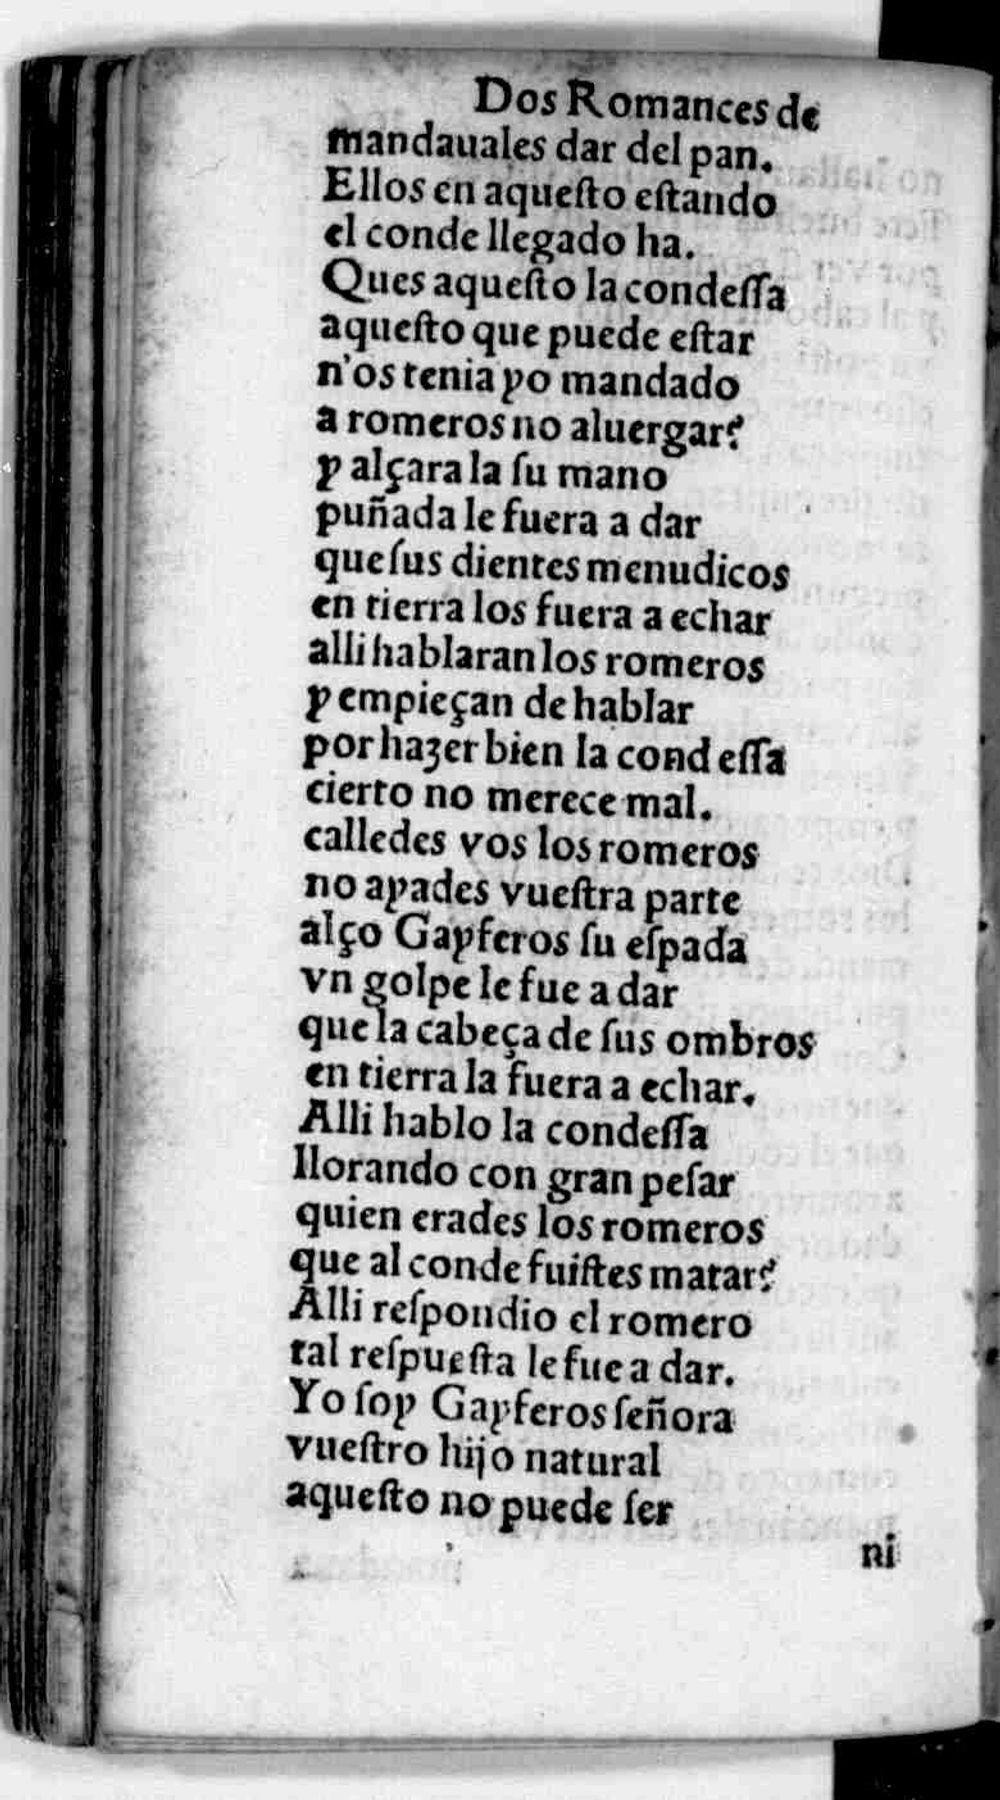 Dos Romances de
mandauales dar del pan.
Ellos en aqueſto eſtando
el conde llegado ha.
Ques aqueſto la condeſſa
aqueſto que puede eſtar
n'os tenia yo mandado
a romeros no aluergar?
y alçara la ſu mano
puñada le fuera a dar
que ſus dientes menudicos
en tierra los fuera a echar
alli hablaran los romeros
y empieçan de hablar
por hazer bien la condeſſa
cierto no merece mal.
calledes vos los romeros
no ayades vueſtra parte
alço Gayferos ſu eſpada
vn golpe le fue a dar
que la cabeça de ſus ombros
en tierra la fuera a echar.
Alli hablo la condeſſa
llorando con gran peſar
quien erades los romeros
que al conde fuiſtes matar?
Alli reſpondio el romero
tal reſpueſta le fue a dar.
Yo ſoy Gayferos ſeñora
vueſtro hijo natural
aqueſto no puede ſer
ni